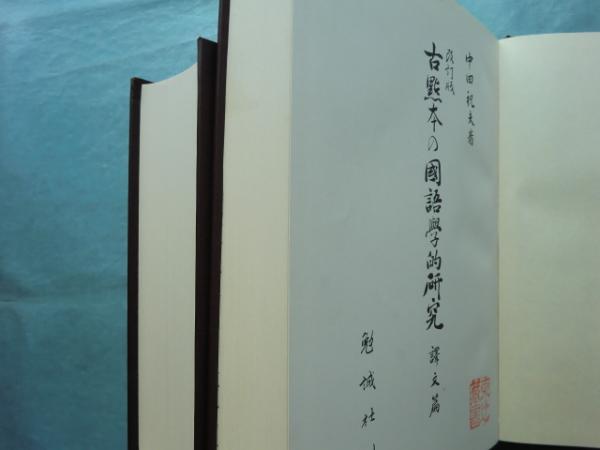 中田祝夫著
改訂版
古點本の國語學的研究 譯文篇
勉誠社